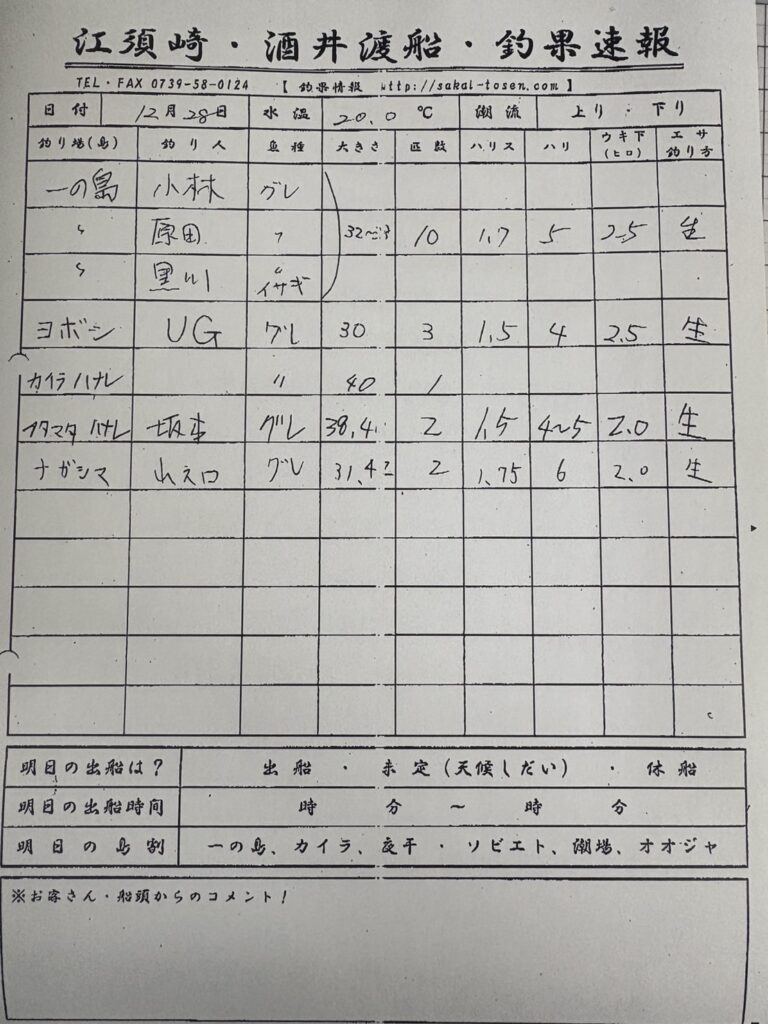 江須崎・酒井渡船・釣果速報
TEL・FAX 0739-58-0124 【 釣果情報 http://sakai-tosen.com 】
日付 12月28日 水温 20.0 ℃ 潮流 上り・下り
釣り場(島) 釣り人 魚種 大きさ 匹数 ハリス ハリ ウキ下(ヒロ) エサ釣り方
一の島 小林 グレ
〃 原田 〃 10 1.7 5 2.5 生
〃 黒川 イサギ
ヨボシ UG グレ 30 3 1.5 4 2.5 生
カイラハナレ 〃 40 1
フタマタハナレ 坂本 グレ 2 1.5 4~5 2.0 生
ナガシマ グレ 31.42 2 1.75 6 2.0 生
明日の出船は? 出船 ・ 未定(天候しだい) ・ 休船
明日の出船時間 時 分 ~ 時 分
明日の島割 一の島、カイラ、夜干 ・ ソビエト、潮場、オオジャ
※お客さん・船頭からのコメント!